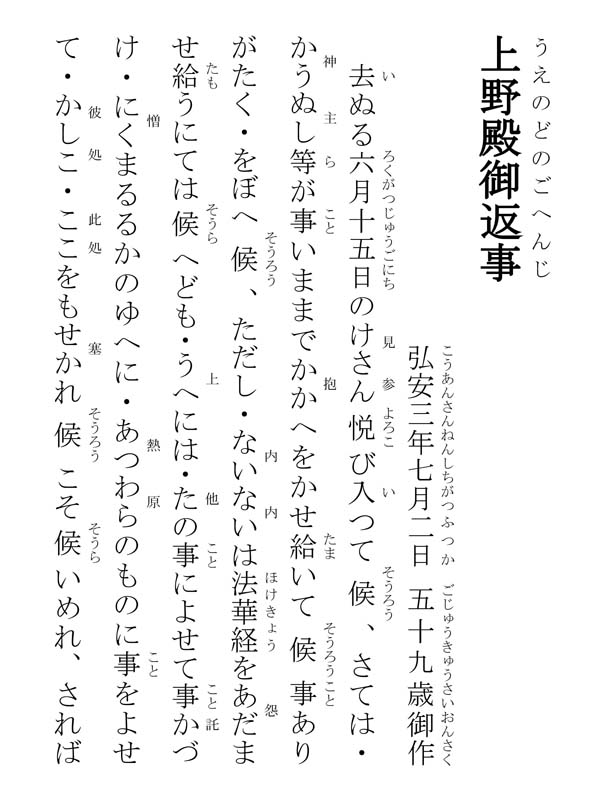 うえのどのごへんじ
上野殿御返事
こうあんさんねんしちがつふつか ごじゅうきゅうさいおんさく
弘安三年七月二日 五十九歳御作
い ろくがつじゅうごにち 見参 よろこ い そうろう
去ぬる六月十五日のけさん悦び入つて候、さては・
神主ら こと 抱 たま そうろうこと
かうぬし等が事いままでかかへをかせ給いて候事あり
そうろう 内内 ほけきょう 怨
がたく・をぼへ候、ただし・ないないは法華経をあだま
たも そうら 上 他 こと こと 託
せ給うにては候へども・うへには・たの事によせて事かづ
憎 熱原 こと
け・にくまるるかのゆへに・あつわらのものに事をよせ
彼処 此処 塞 そうろう そうら
て・かしこ・ここをもせかれ候こそ候いめれ、されば